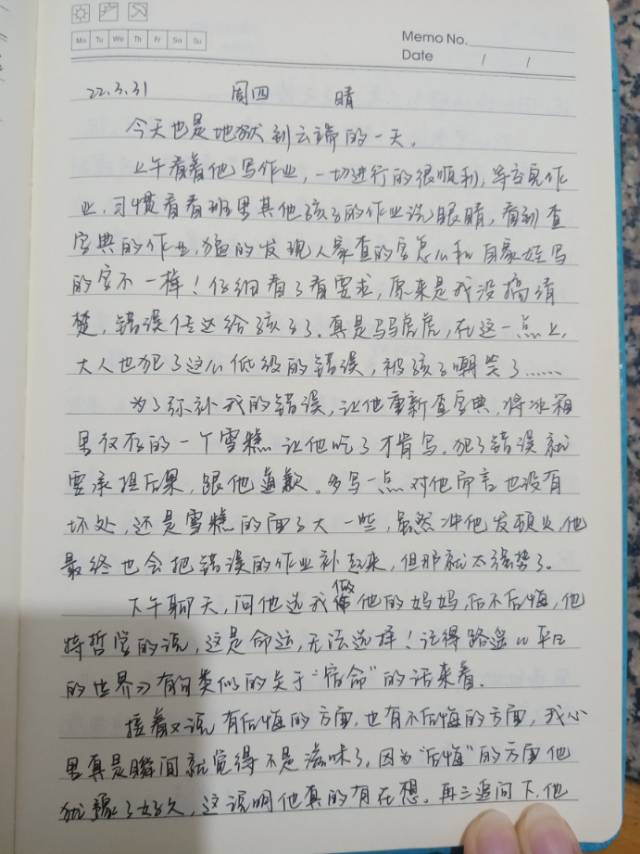 Mo Tu We Th Fr Sa Su
Memo No.
Date / /
22.3.31 周四 晴
今天也是地狱到云端的一天。
上午看着他写作业,一切进行的很顺利,等台见作
业,习惯看看班里其他孩子的作业说眼睛,看到查
字典的作业,猛的发现人家查的字怎么和自家娃写
的字不一样!仔细看了看要求,原来是我没搞清
楚,错误传达给孩子了。真是马马虎虎,在这一点上,
大人也犯了这么低级的错误,被孩子嘲笑了……
为了弥补我的错误,让他重新查字典,将冰箱
里仅存的一个雪糕让他吃了才肯写。犯了错误就
要承担后果,跟他道歉。多写一点对他而言也没有
坏处,还是雪糕的面子大一些,虽然冲他发顿火,他
最终也会把错误的作业补起来,但那就太强势了。
下午聊天,问他选我做他的妈妈,后不后悔,他
特哲学的说,这是命运,无法选择!记得路遥《平凡
的世界》有句类似的关于“宿命”的话来着。
接着又说有后悔的方面,也有不后悔的方面,我心
里真是瞬间就觉得不是滋味了,因为“后悔”的方面他
犹豫了好久,这说明他真的有在想。再三追问下,他